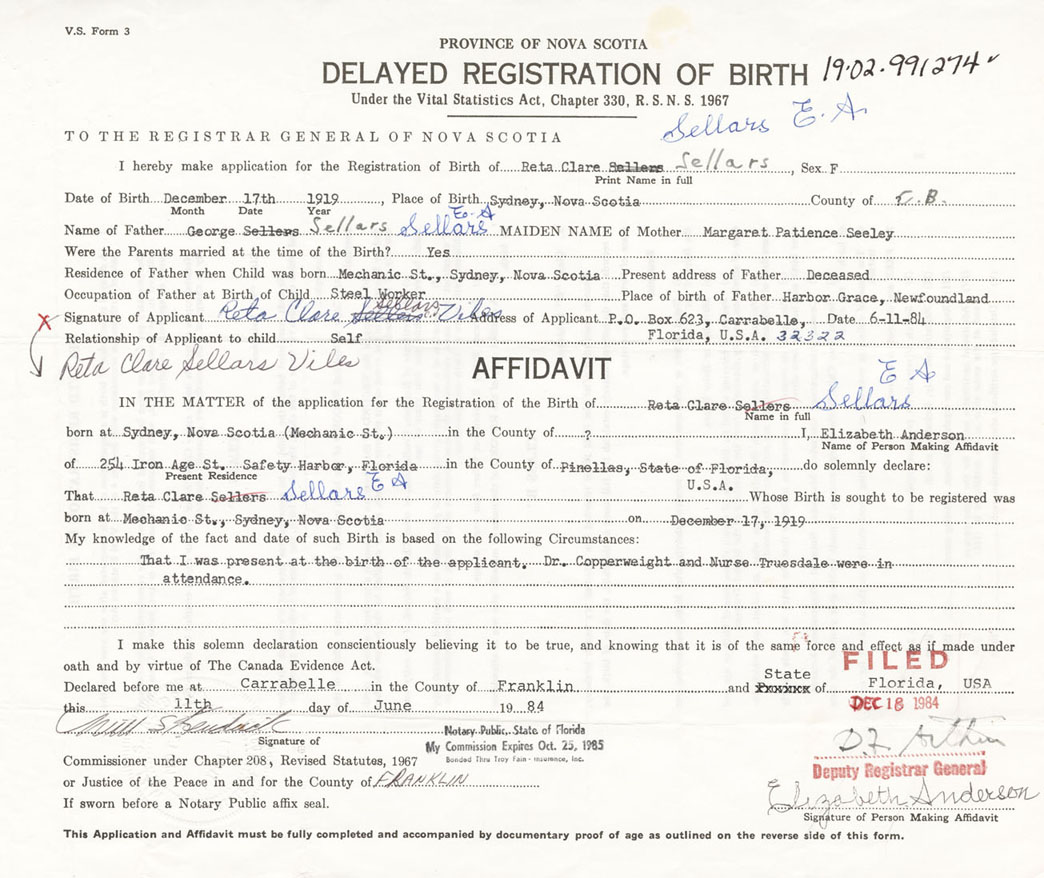 V.S. Form 3
PROVINCE OF NOVA SCOTIA
DELAYED REGISTRATION OF BIRTH 19-02-991274
Under the Vital Statistics Act, Chapter 330, R.S.N.S. 1967
Sellars E. A.
TO THE REGISTRAR GENERAL OF NOVA SCOTIA
I hereby make application for the Registration of Birth of Reta Clare Sellers Sellars, Sex F
Print Name in full
Date of Birth December 17th 1919, Place of Birth Sydney, Nova Scotia County of C.B.
Month Date Year
E. A
Name of Father George Sellers Sellars Sellars MAIDEN NAME of Mother Margaret Patience Seeley
Were the Parents married at the time of the Birth? Yes
Residence of Father when Child was born Mechanic St., Sydney, Nova Scotia Present address of Father Deceased
Occupation of Father at Birth of Child Steel Worker Place of birth of Father Harbor Grace, Newfoundland
Sellars
X Signature of Applicant Reta Clare Sellers Viles Address of Applicant P.O. Box 623, Carrabelle, Date 6-11-84
Relationship of Applicant to child Self Florida, U.S.A. 32322
Reta Clare Sellars Viles
AFFIDAVIT
E A
IN THE MATTER of the application for the Registration of the Birth of Reta Clare Sellers Sellars
Name in full
born at Sydney, Nova Scotia (Mechanic St.) in the County of ? I, Elizabeth Anderson
Name of Person Making Affidavit
of 254 Iron Age St. Safety Harbor, Florida in the County of Pinellas, State of Florida, do solemnly declare:
Present Residence U.S.A.
That Reta Clare Sellers Sellars E A Whose Birth is sought to be registered was
born at Mechanic St., Sydney, Nova Scotia on December 17, 1919
My knowledge of the fact and date of such Birth is based on the following Circumstances:
That I was present at the birth of the applicant. Dr. Copperweight and Nurse Truesdale were in
attendance.
I make this solemn declaration conscientiously believing it to be true, and knowing that it is of the same force and effect as if made under
oath and by virtue of The Canada Evidence Act.
FILED
State
Declared before me at Carrabelle in the County of Franklin and of Florida, USA
this 11th day of June 1984
DEC 18 1984
Signature of
Notary Public, State of Florida
My Commission Expires Oct. 25, 1985
Bonded Thru Troy Fain - Insurance, Inc.
Commissioner under Chapter 208, Revised Statutes, 1967
Deputy Registrar General
or Justice of the Peace in and for the County of FRANKLIN
Elizabeth Anderson
If sworn before a Notary Public affix seal.
Signature of Person Making Affidavit
This Application and Affidavit must be fully completed and accompanied by documentary proof of age as outlined on the reverse side of this form.